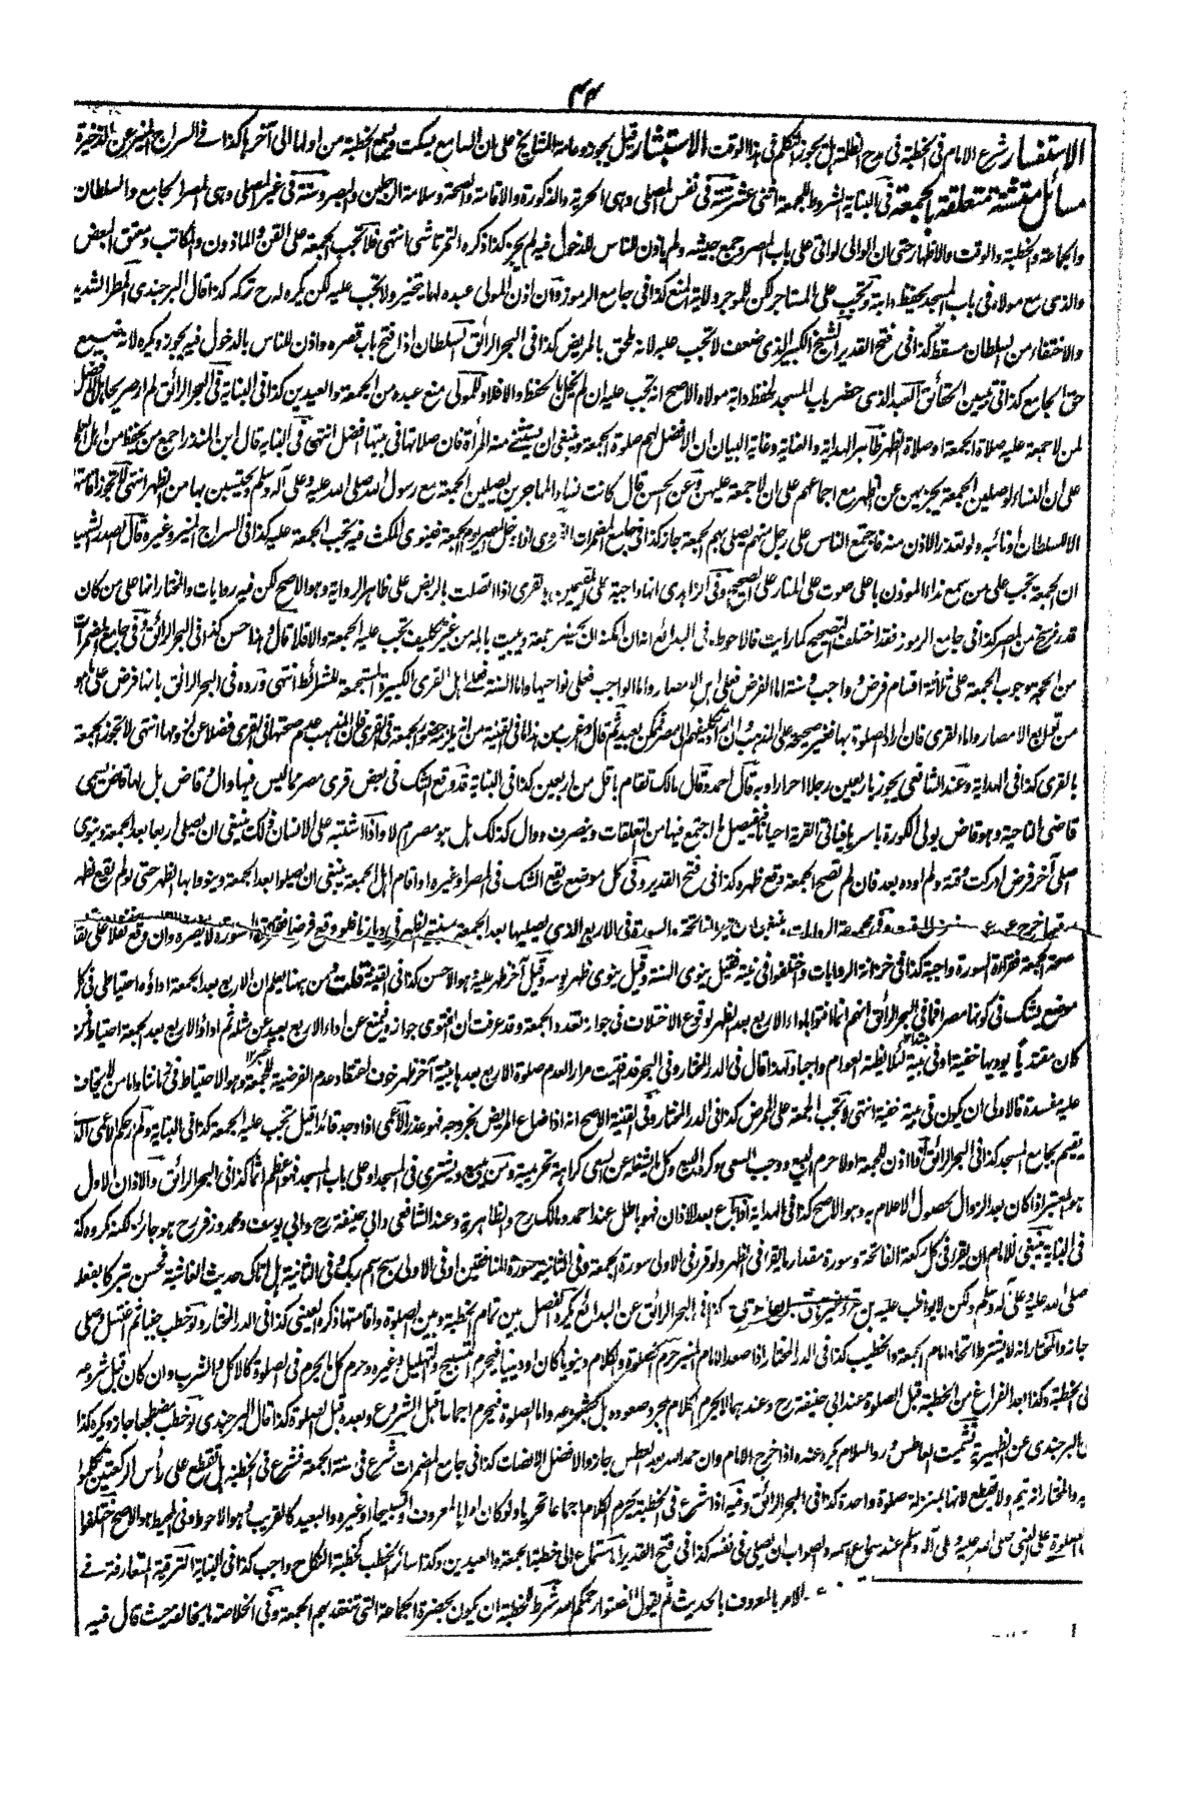 ٤٤
الاستفسار شرع الامام في الخطبة في مدح الظلمة هل يجوز التكلم في هذا الوقت الاستبشار قيل يجوز وعامة المشايخ على ان السامع يسكت ويسمع الخطبة من اولها الى آخرها كذا في السراج المنير عن الذخيرة
مسائل متشتتة متعلقة بالجمعة في البناية الشروط للجمعة اثنى عشر ستة في نفس المصلي وهى الحرية والذكورة والاقامة والصحة وسلامة الرجلين والبصر وستة في غير المصلي وهى المصر الجامع والسلطان
والجماعة والخطبة والوقت والاظهار حتى ان الوالى لو اتى على باب المصر وجمع حشمه ولم ياذن للناس للدخول فيه لم يجز كذا ذكره التمرتاشى انتهى فلا تجب الجمعة على القن والماذون والمكاتب ومعتق البعض
والذى مع مولاه في باب المسجد يحفظ دابته وتجب على المستاجر لكن للموجر ولاية المنع كذا في جامع الرموز وان اذن المولى عبده لها يتخير ولا تجب عليه لكن يكره له ح تركه كذا قال البرجندى المطر الشديد
والاختفاء من السلطان مسقط كذا في فتح القدير الشيخ الكبير الذى ضعف لا تجب عليه لانه ملحق بالمريض كذا في البحر الرائق السلطان اذا فتح باب قصره واذن للناس بالدخول فيه يجوز ويكره لانه ضيع
حق الجامع كذا في تبيين الحقائق العبد الذى حضر باب المسجد لحفظ دابة مولاه الاصح انه تجب عليه ان لم يخل بالحفظ والا فلا وللمولى منع عبده من الجمعة والعيدين كذا في البناية في البحر الرائق لم ار صريحا هل الافضل
لمن لا جمعة عليه صلاة الجمعة او صلاة الظهر ظاهر الهداية والعناية وغاية البيان ان الافضل لهم صلوة الجمعة وينبغى ان يستثنى منه المرأة فان صلاتها في بيتها افضل انتهى في البناية قال ابن المنذر اجمع من يحفظ من اهل العلم
على ان النساء لو صلين الجمعة يجزيهن عن الظهر مع اجماعهم على ان لا جمعة عليهن وعن الحسن قال كانت نساء المهاجرين يصلين الجمعة مع رسول الله صلى الله عليه وعلى آله وسلم ويحتسبن بها من الظهر انتهى لا تجوز اقامتها
الا للسلطان او نائبه ولو تعذر الاذن منه فاجتمع الناس على رجل منهم يصلى بهم الجمعة جاز كذا في جامع المضمرات القروى اذا دخل المصر يوم الجمعة فينوى المكث فيه تجب الجمعة عليه كذا في السراج المنير وغيره قال الصدر الشهيد
ان الجمعة تجب على من سمع نداء المؤذن باعلى صوت على المنارة على الصحيح وفي الزاهدى انها واجبة على المقيمين بقرى اذا اتصلت بالربض على ظاهر الرواية وهو الاصح لكن فيه روايات والمختار انها على من كان
قدر فرسخ من المصر كذا في جامع الرموز فقد اختلف التصحيح كما رايت فالاحوط ما في البدائع انه ان امكنه ان يحضر الجمعة ويبيت باهله من غير تكليف تجب عليه الجمعة والا فلا قال وهذا حسن كذا في البحر الرائق وفي جامع المضمرات
من الحجة وجوب الجمعة على ثلاثة اقسام فرض وواجب وسنة اما الفرض فعلى اهل الامصار واما الواجب فعلى نواحيها واما السنة فعلى اهل القرى الكبيرة المستجمعة للشرائط انتهى ورده في البحر الرائق بانها فرض على ما هو
من توابع الامصار واما القرى فان اراد الصلوة بها فغير صحيحة على المذهب وان اراد تكليفهم الى مصر فممكن بعيد ثم قال واغرب من هذا ما في القنية من انه يلزم حضور الجمعة في القرى فان المذهب عدم صحتها في القرى فضلا عن لزومها انتهى لا تجوز الجمعة
بالقرى كذا في الهداية وعند الشافعى يجوز باربعين رجلا احرارا وبه قال احمد وقال مالك تقام باقل من اربعين كذا في البناية قد وقع الشك في بعض قرى مصر مما ليس فيها وال وقاض بل لها قاض يسمى
قاضى الناحية وهو قاض يولى الكورة باسرها فياتى القرية احيانا فيفصل ما اجتمع فيها من التعلقات وينصرف ووال كذلك هل هو مصر ام لا واذا اشتبه على الانسان ذلك ينبغى ان يصلى اربعا بعد الجمعة وينوى
اصلى آخر فرض ادركت وقته ولم اوده بعد فان لم تصح الجمعة وقع ظهره كذا في فتح القدير وفي كل موضع يقع الشك في المصر او غيره او اقام اهل الجمعة ينبغى ان يصلوا بعد الجمعة وينووا بها الظهر حتى لو لم يقع الظهر
ينبغى ان يقرأ الفاتحة والسورة في الاربع الذى يصليها بعد الجمعة بنية الظهر في ديارنا فلو وقع فرضا فقراءة السورة لا تضره وان وقع نفلا على تقدير
صحة الجمعة فقراءة السورة واجبة كذا في خزانة الروايات واختلفوا في نيته فقيل ينوى السنة وقيل ينوى ظهر يومه وقيل آخر ظهر عليه وهو الاحسن كذا في القنية قلت ومن ههنا يعلم ان الاربع بعد الجمعة اداؤه احتياطى في كل
موضع يشك في كونها مصرا فما في البحر الرائق انهم انما افتوا باداء الاربع بعد الظهر لوقوع الاختلاف في جواز تعدد الجمعة وقد عرفت ان الفتوى جوازه فيمنع عن اداء الاربع بعيد عن مثله ثم اداؤ الاربع بعد الجمعة احتياطا فمن
كان مقتدى به يوديها خفية او في بيته لئلا يظنه العوام واجبا ولهذا قال في الدر المختار وفي البحر قد افتيت مرارا لعدم صلوة الاربع بعدها بنية آخر ظهر خوف اعتقاد عدم الفرضية للجمعة وهو الاحتياط في زماننا واما من لا يخاف
عليه مفسدة فالاولى ان يكون في بيته خفية انتهى لا تجب الجمعة على الممرض كذا في الدر المختار وفي القنية الاصح انه اذا ضاع المريض بخروجه فهو عذر الاعمى اذا وجد قائدا قيل تجب عليه الجمعة كذا في البناية ولم ار حكم الاعمى اذا كان
يقيم بجامع المسجد كذا في البحر الرائق اذا اذن للجمعة اولا حرم البيع ووجب السعى وكره البيع وكل ما يشغل عن السعى كراهة تحريمية ومن يبيع ويشترى في المسجد او على باب المسجد فهو اعظم اثما كذا في البحر الرائق والاذان الاول
هو المعتبر اذا كان بعد الزوال لحصول الاعلام به وهو الاصح كذا في الهداية اذا باع بعد الاذان فهو باطل عند احمد ومالك رح والظاهرية وعند الشافعى وابى حنيفة رح وابى يوسف ومحمد وزفر رح هو جائز لكنه مكروه كذا
في البناية ينبغى للامام ان يقرأ في كل ركعة الفاتحة وسورة مقدار ما يقرأ في الظهر ولو قرأ في الاولى سورة الجمعة وفي الثانية سورة المنافقين او في الاولى سبح اسم ربك وفي الثانية هل اتاك حديث الغاشية فحسن تبركا بفعله
صلى الله عليه وعلى آله وسلم ولكن لا يواظب عليه كذا في البحر الرائق عن البدائع يكره الفصل بين تمام الخطبة وبين الصلوة واقامتها ذكره العينى كذا في الدر المختار ولو خطب جنبا ثم اغتسل وصلى
جاز والمختار انه لا يشترط اتحاد امام الجمعة والخطيب كذا في الدر المختار اذا صعد الامام المنبر حرم الصلوة والكلام دينويا كان او دينيا فيحرم التسبيح والتهليل وغيره وحرم كل ما يحرم في الصلوة كالاكل والشرب وان كان قبل شروعه
في الخطبة وكذا بعد الفراغ من الخطبة قبل الصلوة عند ابى حنيفة رح وعندهما لا يحرم الكلام بمجرد صعوده بل بشروعه واما الصلوة فيحرم اجماعا قبل الشروع وبعده قبل الصلوة كذا قال البرجندى لو خطب مضطجعا جاز ويكره كذا
في البرجندى عن الظهيرية تشميت العاطس ورد السلام يكره عنده اذا خرج الامام وان حمد الله بعد العطس جاز والافضل الانصات كذا في جامع المضمرات شرع في سنة الجمعة فشرع في الخطبة هل يقطع على رأس الركعتين تكلموا
فيه والمختار انه يتم ولا يقطع لانها بمنزلة صلوة واحدة كذا في البحر الرائق وفيه اذا شرع في الخطبة يحرم الكلام اجماعا تحريما ولو كان امرا بالمعروف او تسبيحا او غيره والبعيد كالقريب وهو الاحوط وفي المحيط هو الاصح اختلفوا
في الصلوة على النبى صلى الله عليه وعلى آله وسلم عند سماع اسمه والصواب ان يصلى في نفسه كذا في فتح القدير الاستماع الى خطبة الجمعة والعيدين وكذا سائر الخطب كخطبة النكاح واجب كذا في البناية الترقية المتعارفة في
الامر بالمعروف بالحديث ثم يقول انصتوا رحمكم الله شرط الخطبة ان يكون بحضرة الجماعة التى تنعقد بهم الجمعة وفي الخلاصة ما يخالفه حيث قال فيه